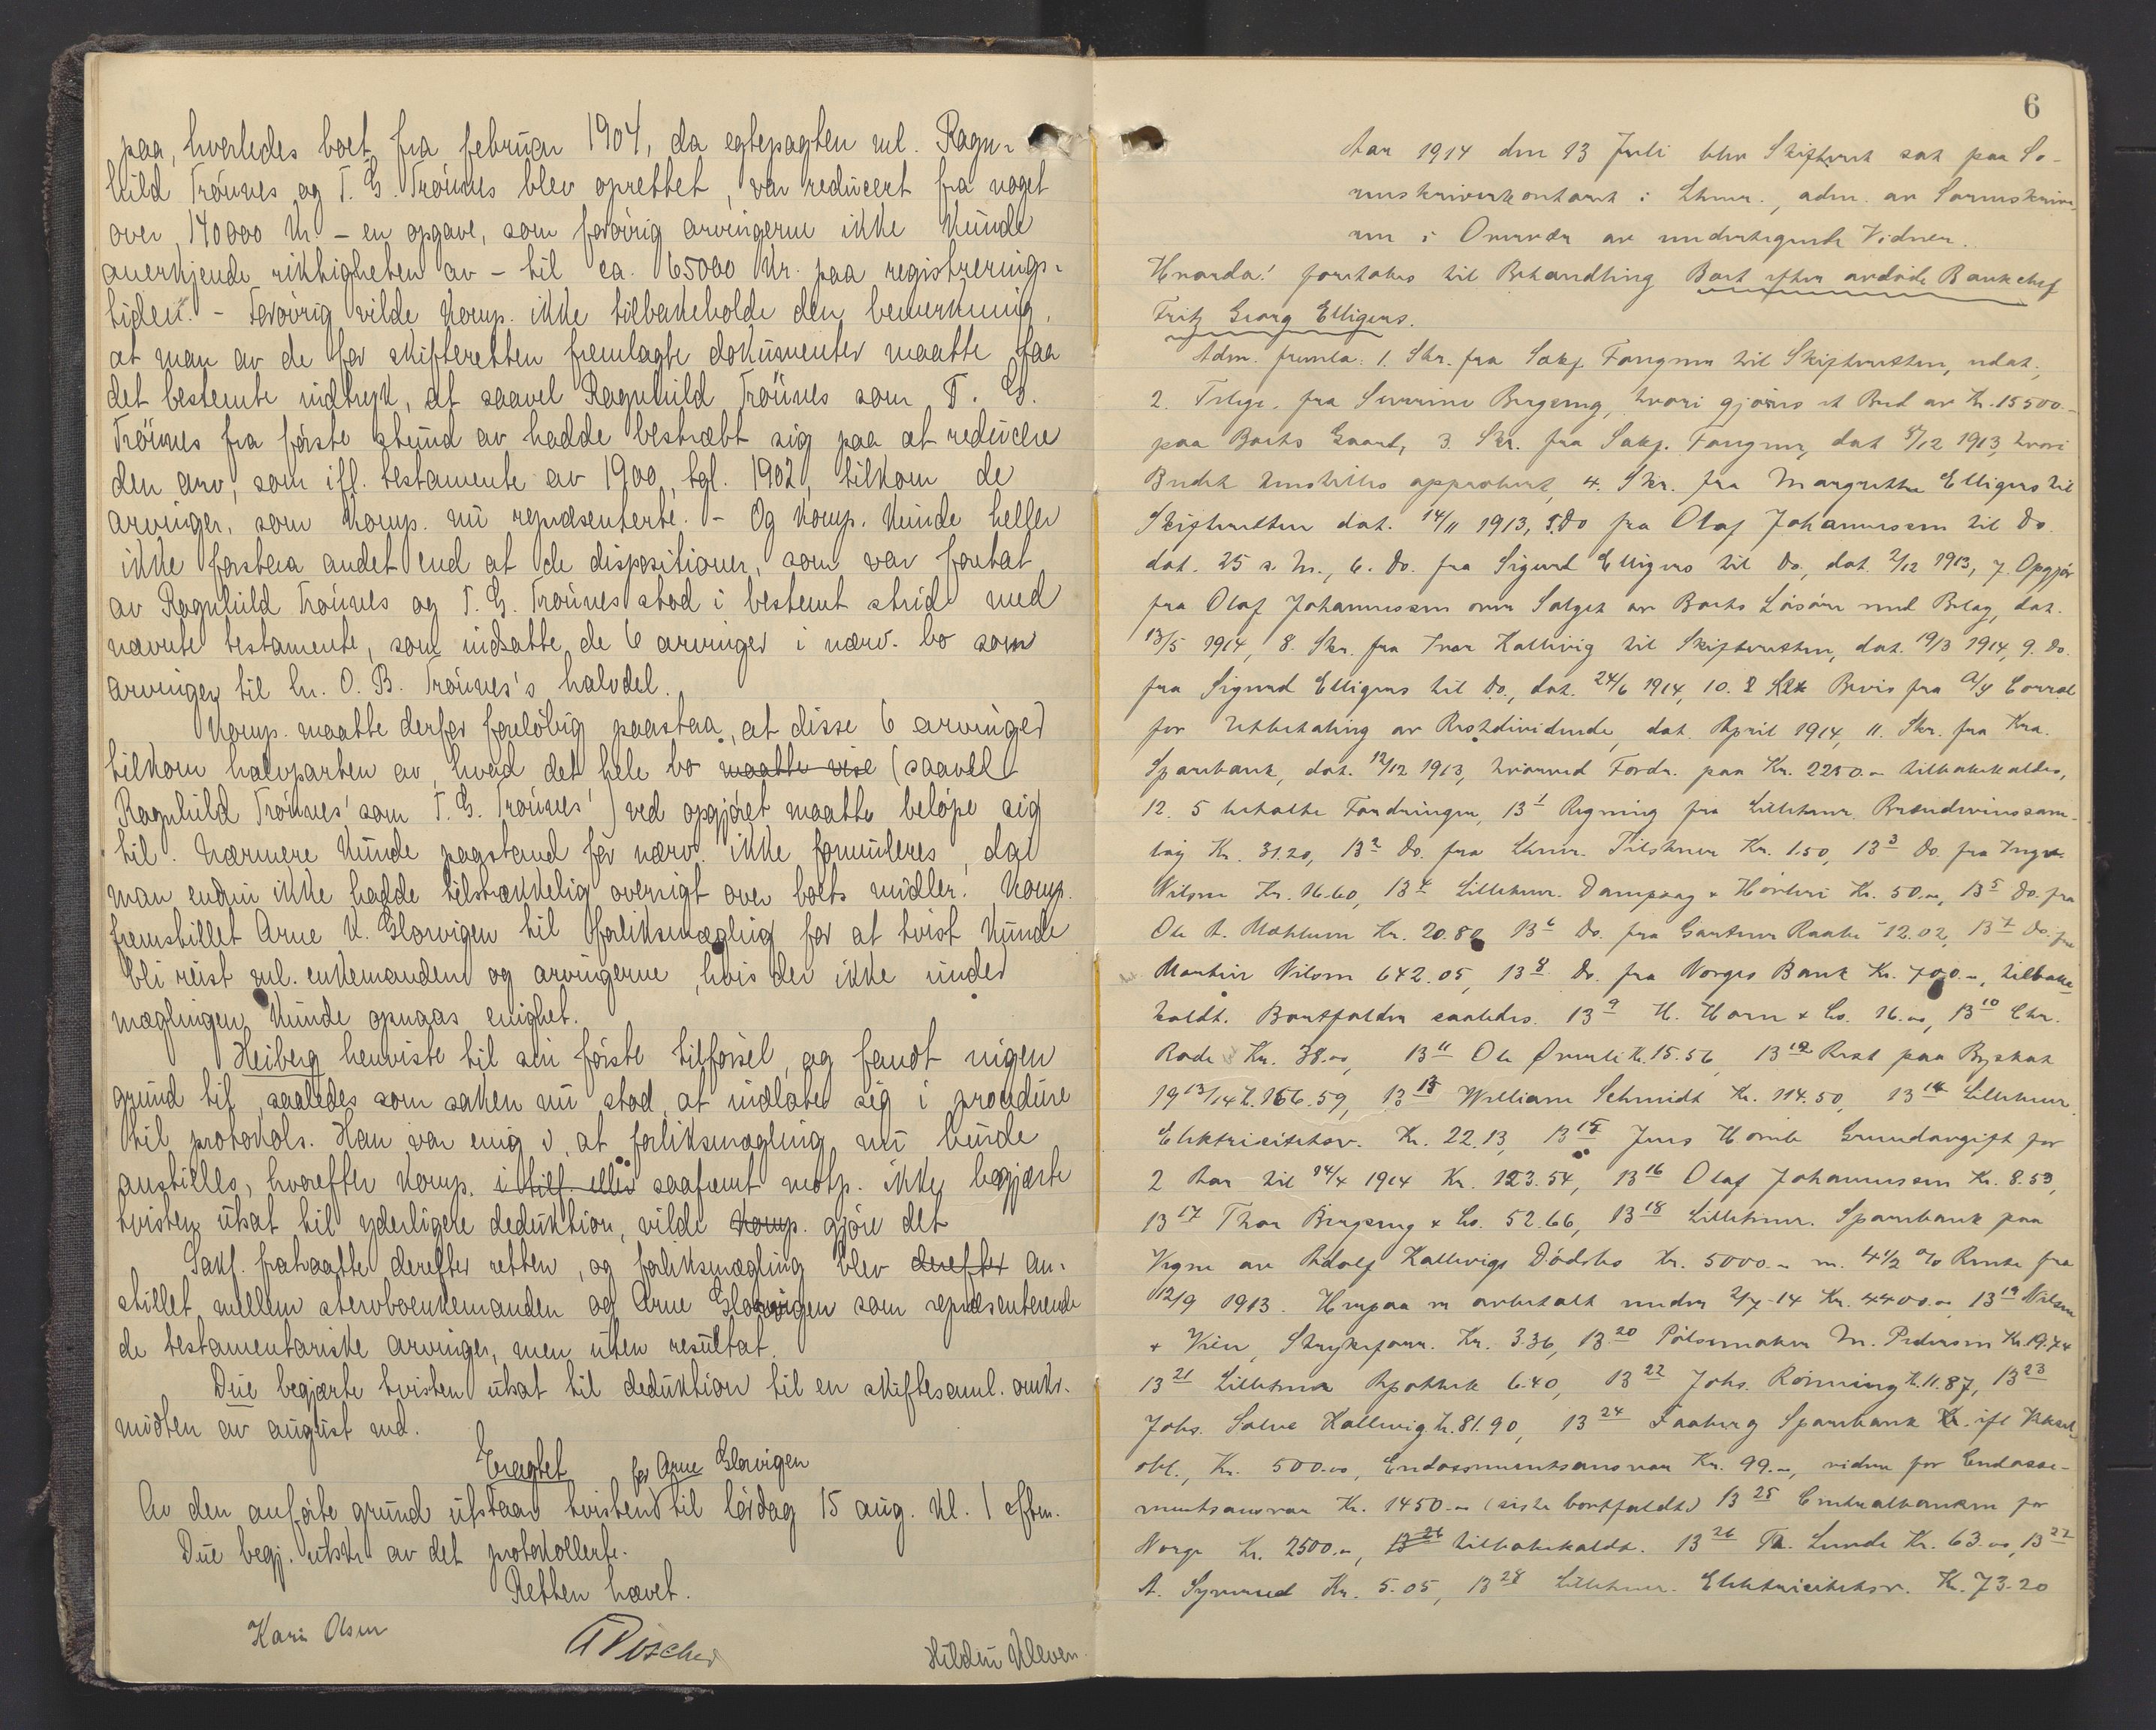 paa, hvorledes boet fra februar 1904, da egtepagten ml. Ragn-
hild Trønnes og T. G. Trønnes blev oprettet, var reducert fra noget
over 140000 Kr – en opgave, som forøvrig arvingerne ikke kunde
anerkjende riktigheten av – til ca. 65000 Kr. paa registrerings-
tiden. – Forøvrig vilde Komp. ikke tilbakeholde den bemerkning,
at man av de for skifteretten fremlagte dokumenter maatte faa
det bestemte indtryk, at saavel Ragnhild Trønnes som T. G.
Trønnes fra første stund av hadde bestræbt sig paa at reducere
den arv, som ifl. testamente av 1900, tgl. 1902, tilkom de
arvinger, som Komp. nu repræsenterte. – Og Komp. kunde heller
ikke forstaa andet end at de dispositioner, som var foretat
av Ragnhild Trønnes og T. G. Trønnes stod i bestemt strid med
nævnte testamente, som indsatte de 6 arvinger i nærv. bo som
arvinger til hr. O. B. Trønnes's halvdel.
Komp. maatte derfor foreløbig paastaa, at disse 6 arvinger
tilkom halvparten av, hvad det hele bo maatte vise (saavel
Ragnhild Trønnes' som T. G. Trønnes') ved opgjøret maatte beløpe sig
til. Nærmere kunde paastand for nærv. ikke formuleres, da
man endnu ikke hadde tilstrækkelig oversigt over boets midler. Komp.
fremstillet Arne K. Glørvigen til forliksmægling for at tvist kunde
bli reist ml. enkemanden og arvingerne, hvis der ikke under
mæglingen kunde opnaas enighet.
Heiberg henviste til sin første tilførsel, og fandt ingen
grund til, saaledes som saken nu stod, at indlate sig i procedure
til protokols. Han var enig i, at forliksmægling nu burde
anstilles, hvorefter Komp. i tilf. eller saafremt motp. ikke begjærte
tvisten utsat til yderligere deduktion, vilde Komp. gjøre det
Sakf. fratraatte derefter retten, og forliksmægling blev derefter an-
stillet mellem stervboenkemanden og Arne Glørvigen som repræsenterende
de testamentariske arvinger, men uten resultat.
Due begjærte tvisten utsat til deduktion til en skiftesaml. omkr.
midten av august md.
Eragtet for Arne Glørvigen
Av den anførte grund utstaar tvisten til lørdag 15 aug. kl. 1 eftm.
Due begj. utskr. av det protokollerte.
Retten hævet.
Kari Olsen
Hildur Kleven
6
Aar 1914 den 13 Juli blev Skifteret sat paa So-
renskriverkontoret i Lhmr., adm. av Sorenskrive-
ren i Overvær av undertegnede Vidner.
Hvorda: foretokes til Behandling Boet efter avdøde Bankchef
Fritz Georg Elligers.
Adm. fremla: 1. Skr. fra Sakf. Fougner til Skifteretten, udat.,
2. Telegr. fra Severine Bergseng, hvori gjøres et Bud av Kr. 15500.-
paa Boets Gaard, 3. Skr. fra Sakf. Fougner, dat 5/12 1913, hvori
Budet henstilles approbert, 4. Skr. fra Margrethe Elligers til
Skifteretten dat. 14/11 1913, 5. Do fra Olaf Johannessen til Do.
dat. 25 s. M., 6. Do. fra Sigurd Elligers til Do., dat. 2/12 1913, 7. Opgjør
fra Olaf Johannessen over Salget av Boets Løsøre med Bilag, dat.
13/5 1914, 8. Skr. fra Ivar Hallivig til Skifteretten, dat. 19/3 1914, 9. Do.
fra Sigurd Elligers til Do., dat. 24/6 1914, 10. Bevis fra A/S Corral
for Utbetaling av Restdividende, dat. April 1914, 11. Skr. fra Kra.
Sparebank, dat. 12/12 1913, hvorved Fordr. paa Kr. 2250.- tilbakekaldes,
12. 5 betalte Fordringer, 13 1 Regning fra Lillehmr. Brændevinssam-
lag Kr. 31.20, 13 2 Do. fra Lhmr. Tilskuer Kr. 1.50, 13 3 Do. fra Ingv.
Nilsen Kr. 16.60, 13 4 Lillehmr. Dampsag & Høvleri Kr. 50.-, 13 5 Do. fra
Ole A. Mæhlum Kr. 20.80, 13 6 Do. fra Gartner Raabe 12.02, 13 7 Do. fra
Martin Nilsen 642.05, 13 8 Do. fra Norges Bank Kr. 700.-, tilbake-
kaldt. Bortfalder saaledes. 13 9 H. Horn & Co. 16.00, 13 10 Chr.
Rode Kr. 38.00, 13 11 Ole Øverli Kr. 15.56, 13 12 Rest paa Byskat
19 13/14 Kr. 166.59, 13 13 William Schmidt Kr. 114.50, 13 14 Lillehmr.
Elektricitetsv. Kr. 22.13, 13 15 Jens Homle Grundavgift for
2 Aar til 14/4 1914 Kr. 123.54, 13 16 Olaf Johannessen Kr. 8.53,
13 17 Thor Bergseng & Co. 52.66, 13 18 Lillehmr. Sparebank paa
Vegne av Adolf Hallevigs Dødsbo Kr. 5000.- m. 4 1/2 % Rente fra
12/9 1913. Herpaa er avbetalt under 2/7-14 Kr. 4400.00 13 19 Nilsen
& Vien, Strykeforr. Kr. 3.36, 13 20 Pølsemaker M. Pedersen Kr. 19.74
13 21 Lillehmr Apothek 6.40, 13 22 Johs. Rønning Kr. 11.87, 13 23
Johs. Salve Hallevig Kr. 81.90, 13 24 Faaberg Sparebank Kr. ifl Veksel-
obl., Kr. 500.00, Endossementsansvar Kr. 99.-, videre for Endosse-
mentsansvar Kr. 1450.- (siste bortfaldt) 13 25 Centralbanken for
Norge Kr. 2500.-, 13 26 tilbakekaldt. 13 26 Th. Lunde Kr. 63.00, 13 27
A. Kr. 5.05, 13 28 Lillehmr. Elektricitetsv. Kr. 73.20